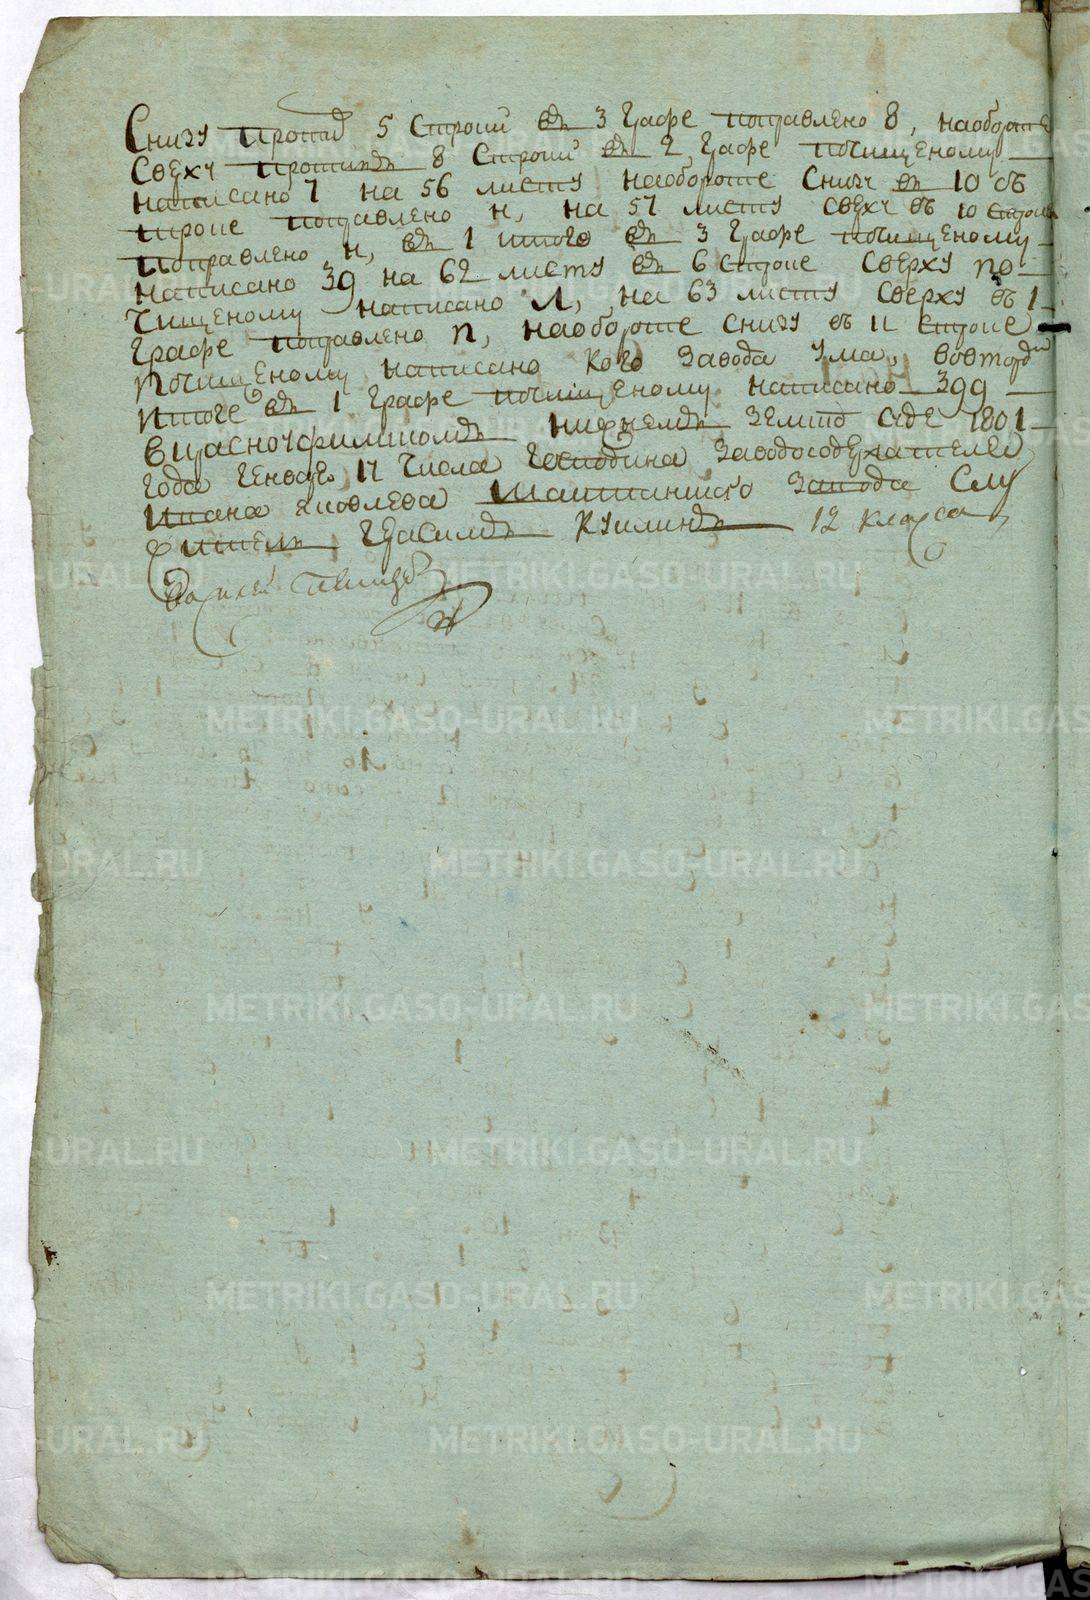 Снизу противъ 5 строки въ 3 графе поправлено 8, наобороте
Сверху противъ 8 строки въ 2 графе почищеному
написано 7 на 56 листу наобороте снизу въ 10 с
троке поправлено н, на 57 листу сверху въ 10 строке
поправлено н, въ 1 итоге въ 3 графе почищеному
написано 39 на 62 листу въ 6 строке сверху по
чищеному написано Л, на 63 листу сверху въ 1
графе поправлено п, наобороте снизу въ 11 строке
почищеному написано кого завода ума, вовторой
итоге въ 1 графе почищеному написано 399
вкрасноуфимскомъ нижнемъ земскомъ суде 1801
года генваря 17 числа господина заводосодержателя
Ивана Яковлева завода слу
житель Герасимъ 12 класса
METRIKI.GASO-URAL.RU